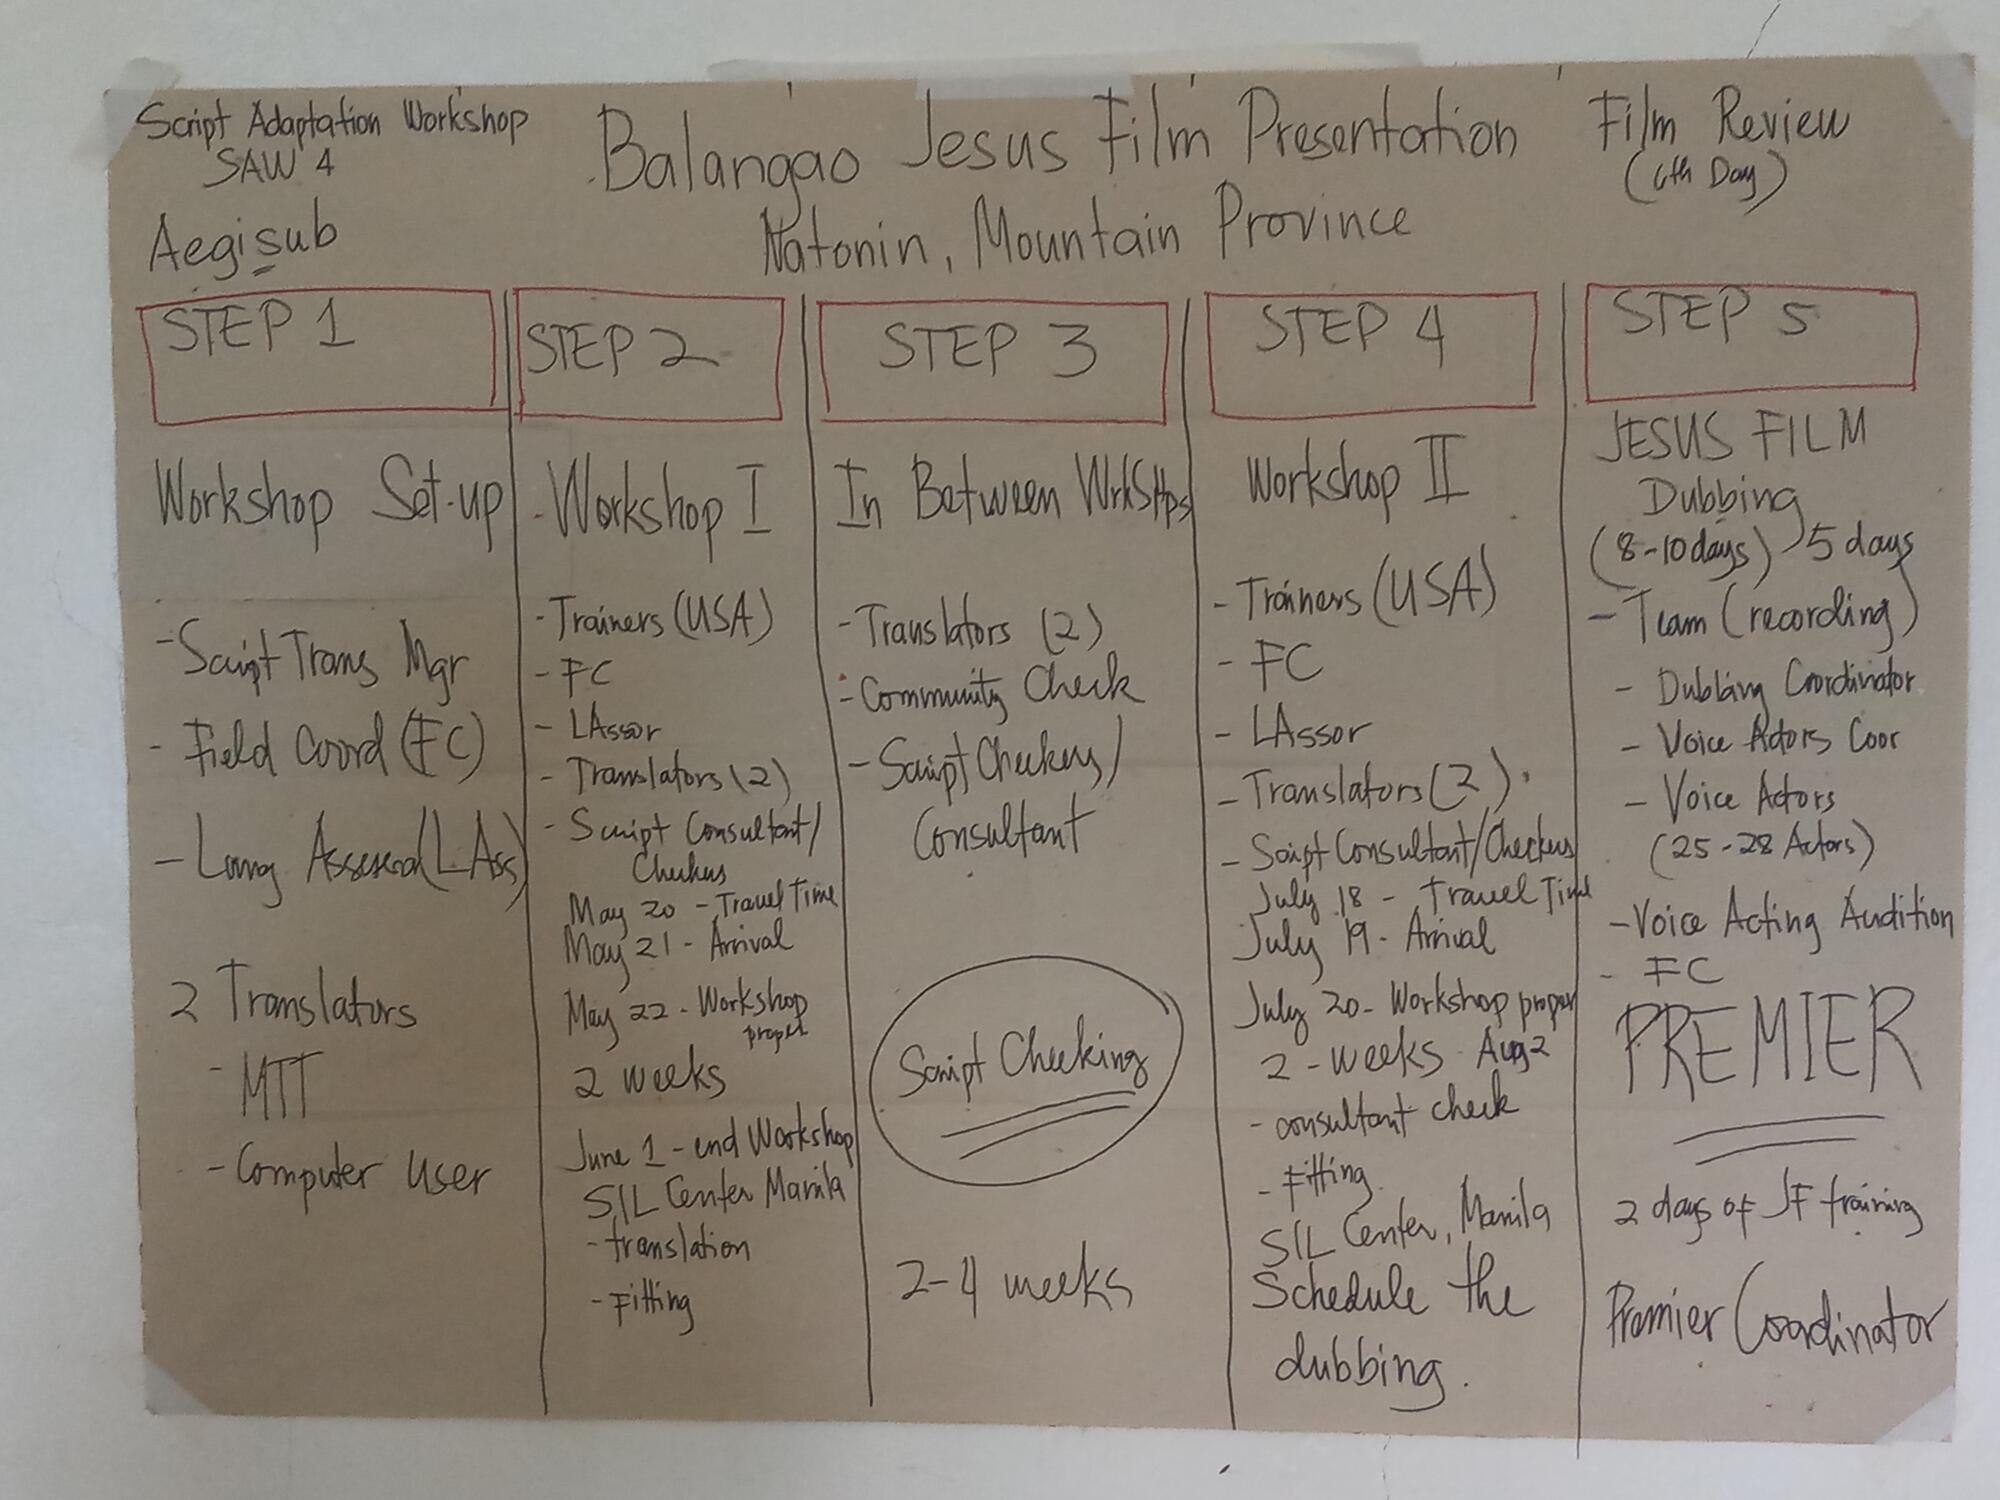 Script Adaptation Workshop
SAW 4
Aegisub
Balangao Jesus Film Presentation
Natonin, Mountain Province
Film Review
(6th Day)
STEP 1
Workshop Set-up
- Script Trans Mgr
- Field Coord (FC)
- Lang Assessor (LAss)
2 Translators
- MTT
- Computer user
STEP 2
- Workshop I
- Trainers (USA)
- FC
- LAssor
- Translators (2)
- Script Consultant/
Checkers
May 20 - Travel Time
May 21 - Arrival
May 22 - Workshop
proper
2 weeks
June 1 - end Workshop
SIL Center Manila
- translation
- Fitting
STEP 3
In Between WrkSHps
- Translators (2)
- Community Check
- Script Checkers/
Consultant
Script Checking
2-4 weeks
STEP 4
Workshop II
- Trainers (USA)
- FC
- LAssor
- Translators (2)
- Script Consultant/Checkers
July 18 - Travel Time
July 19 - Arrival
July 20 - Workshop proper
2 - weeks - Aug 2
- consultant check
- Fitting
SIL Center, Manila
Schedule the
dubbing.
STEP 5
JESUS FILM
Dubbing
(8-10 days) 5 days
- Team (recording)
- Dubbing Coordinator
- Voice Actors Coor
- Voice Actors
(25-28 Actors)
- Voice Acting Audition
- FC
PREMIER
2 days of JF training
Premier Coordinator